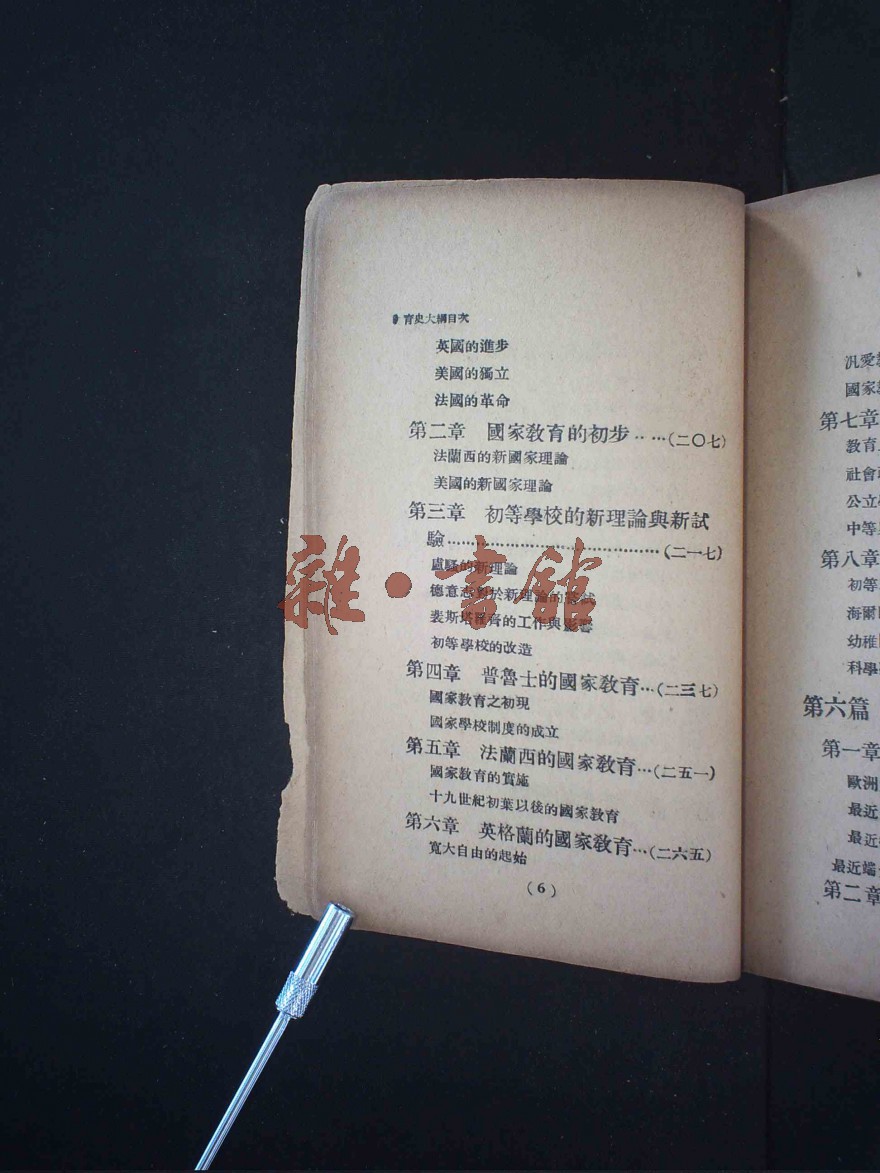 育史大綱目次
英國的進步
美國的獨立
法國的革命
第二章 國家教育的初步‥…(二〇七)
法蘭西的新國家理論
美國的新國家理論
第三章 初等學校的新理論與新試
驗……………………………………(二一七)
盧騷的新理論
德意志對於新理論的嘗試
裴斯塔羅齊的工作與影響
初等學校的改造
第四章 普魯士的國家教育…(二三七)
國家教育之初現
國家學校制度的成立
第五章 法蘭西的國家教育…(二五一)
國家教育的實施
十九世紀初葉以後的國家教育
第六章 英格蘭的國家教育…(二六五)
寬大自由的起始
(6)
雜·書館
汎愛
國家
第七章
教育
社會
公立
中等
第八章
初等
海爾
幼稚
科學
第六篇
第一章
歐洲
最近
最近
最近端
第二章